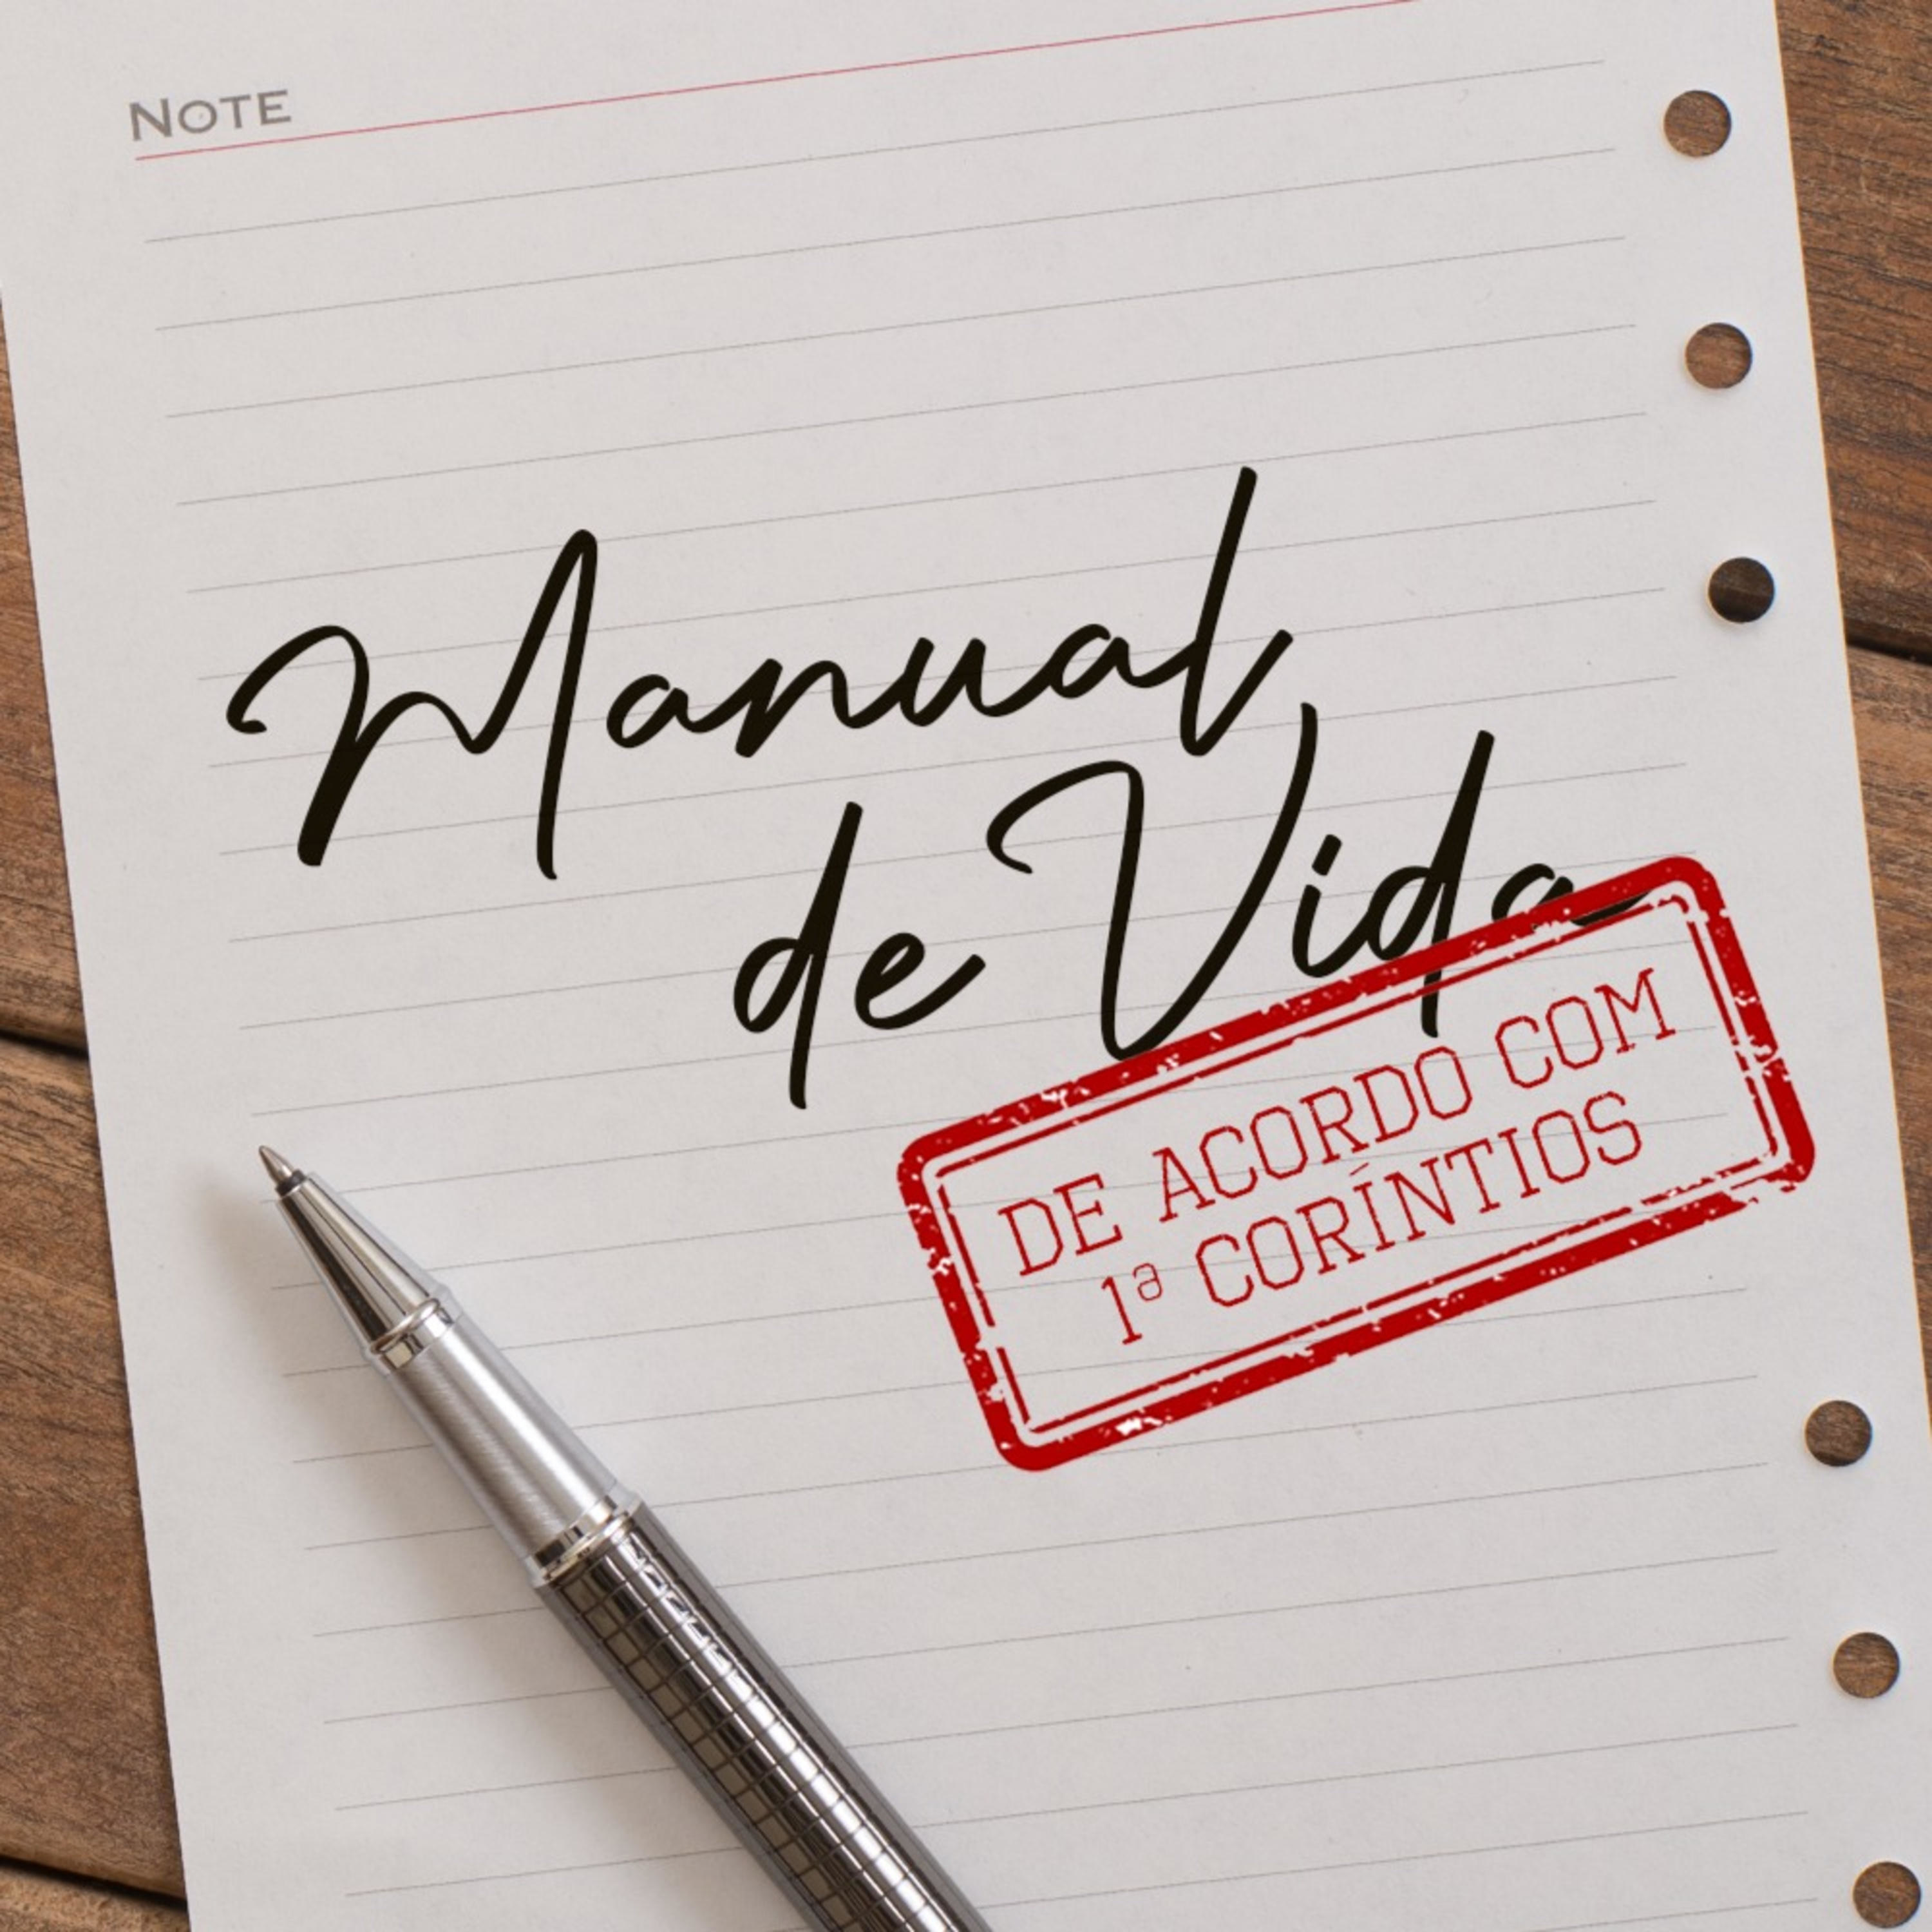 NOTE
Manual
de Vida
DE ACORDO COM
1ª CORÍNTIOS